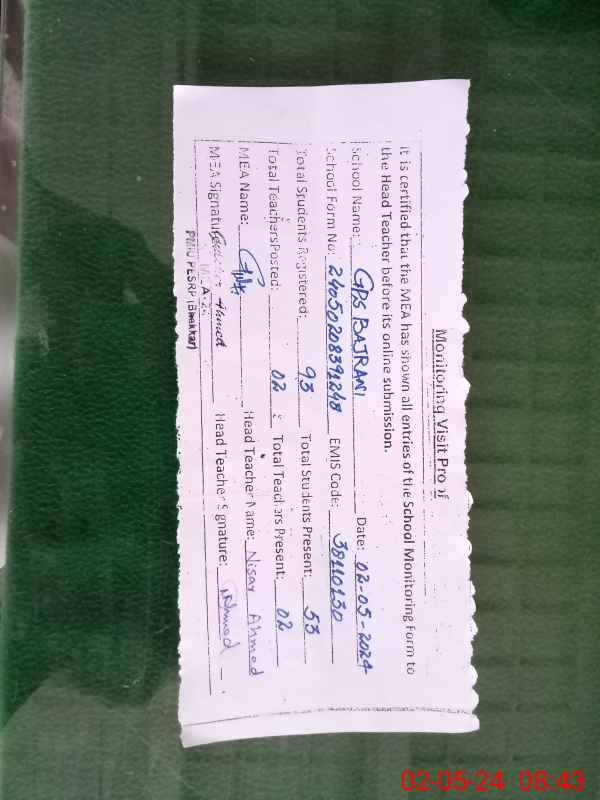 Monitoring Visit Proof
It is certified that the MEA has shown all entries of the School Monitoring Form to
the Head Teacher before its online submission.
School Name: GPS BAJRANI Date: 02-05-2024
School Form No: 24050208391248 EMIS Code: 38110130
Total Students Registered: 93 Total Students Present: 53
Total Teachers Posted: 02 Total Teachers Present: 02
MEA Name: Head Teacher Name: Nisar Ahmed
MEA Signature: Ahmed Head Teacher Signature: Ahmed
MEA
PMIU PESRP (Bhakkar)
02-05-24 08:43